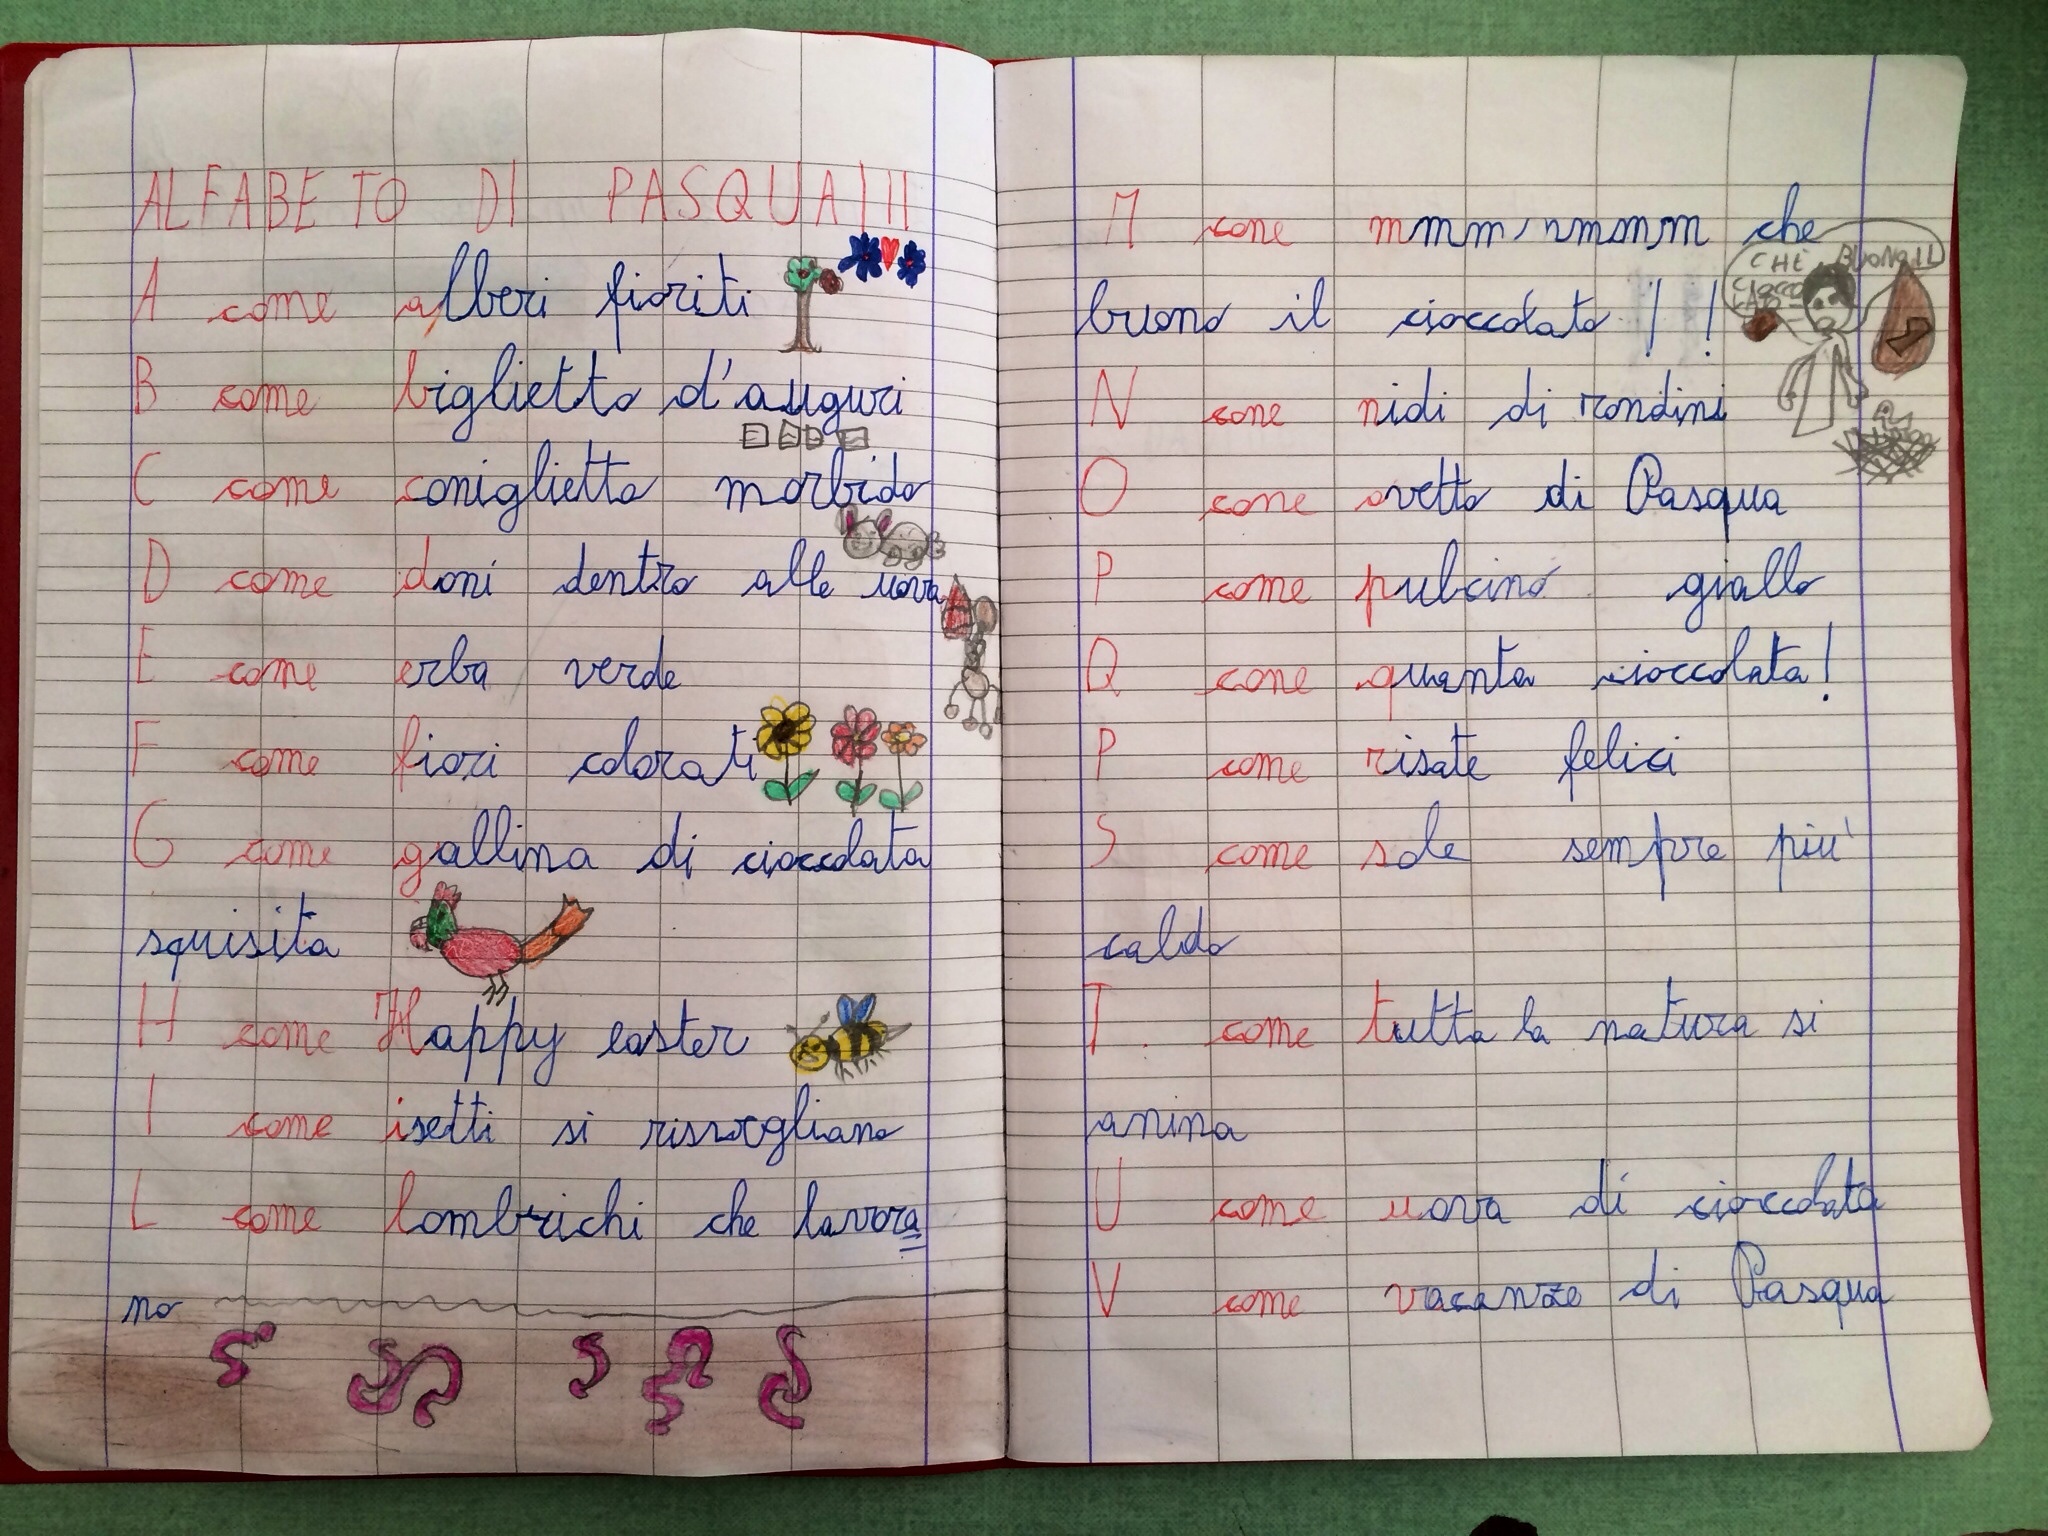 ALFABETO DI PASQUA!!!
A come alberi fioriti
B come biglietto d'auguri
C come coniglietto morbido
D come doni dentro alle uova
E come erba verde
F come fiori colorati
G come gallina di cioccolata
squisita
H come Happy easter
I come isetti si risvegliano
L come lombrichi che lavora
no
M come mmm, mmmm che
buono il cioccolato !!
CHE BUONO IL
CIOCCO
LATO
N come nidi di rondini
O come ovetto di Pasqua
P come pulcino giallo
Q come quanta cioccolata!
P come risate felici
S come sole sempre più
caldo
T come tutta la natura si
anina
U come uova di cioccolata
V come vacanze di Pasqua